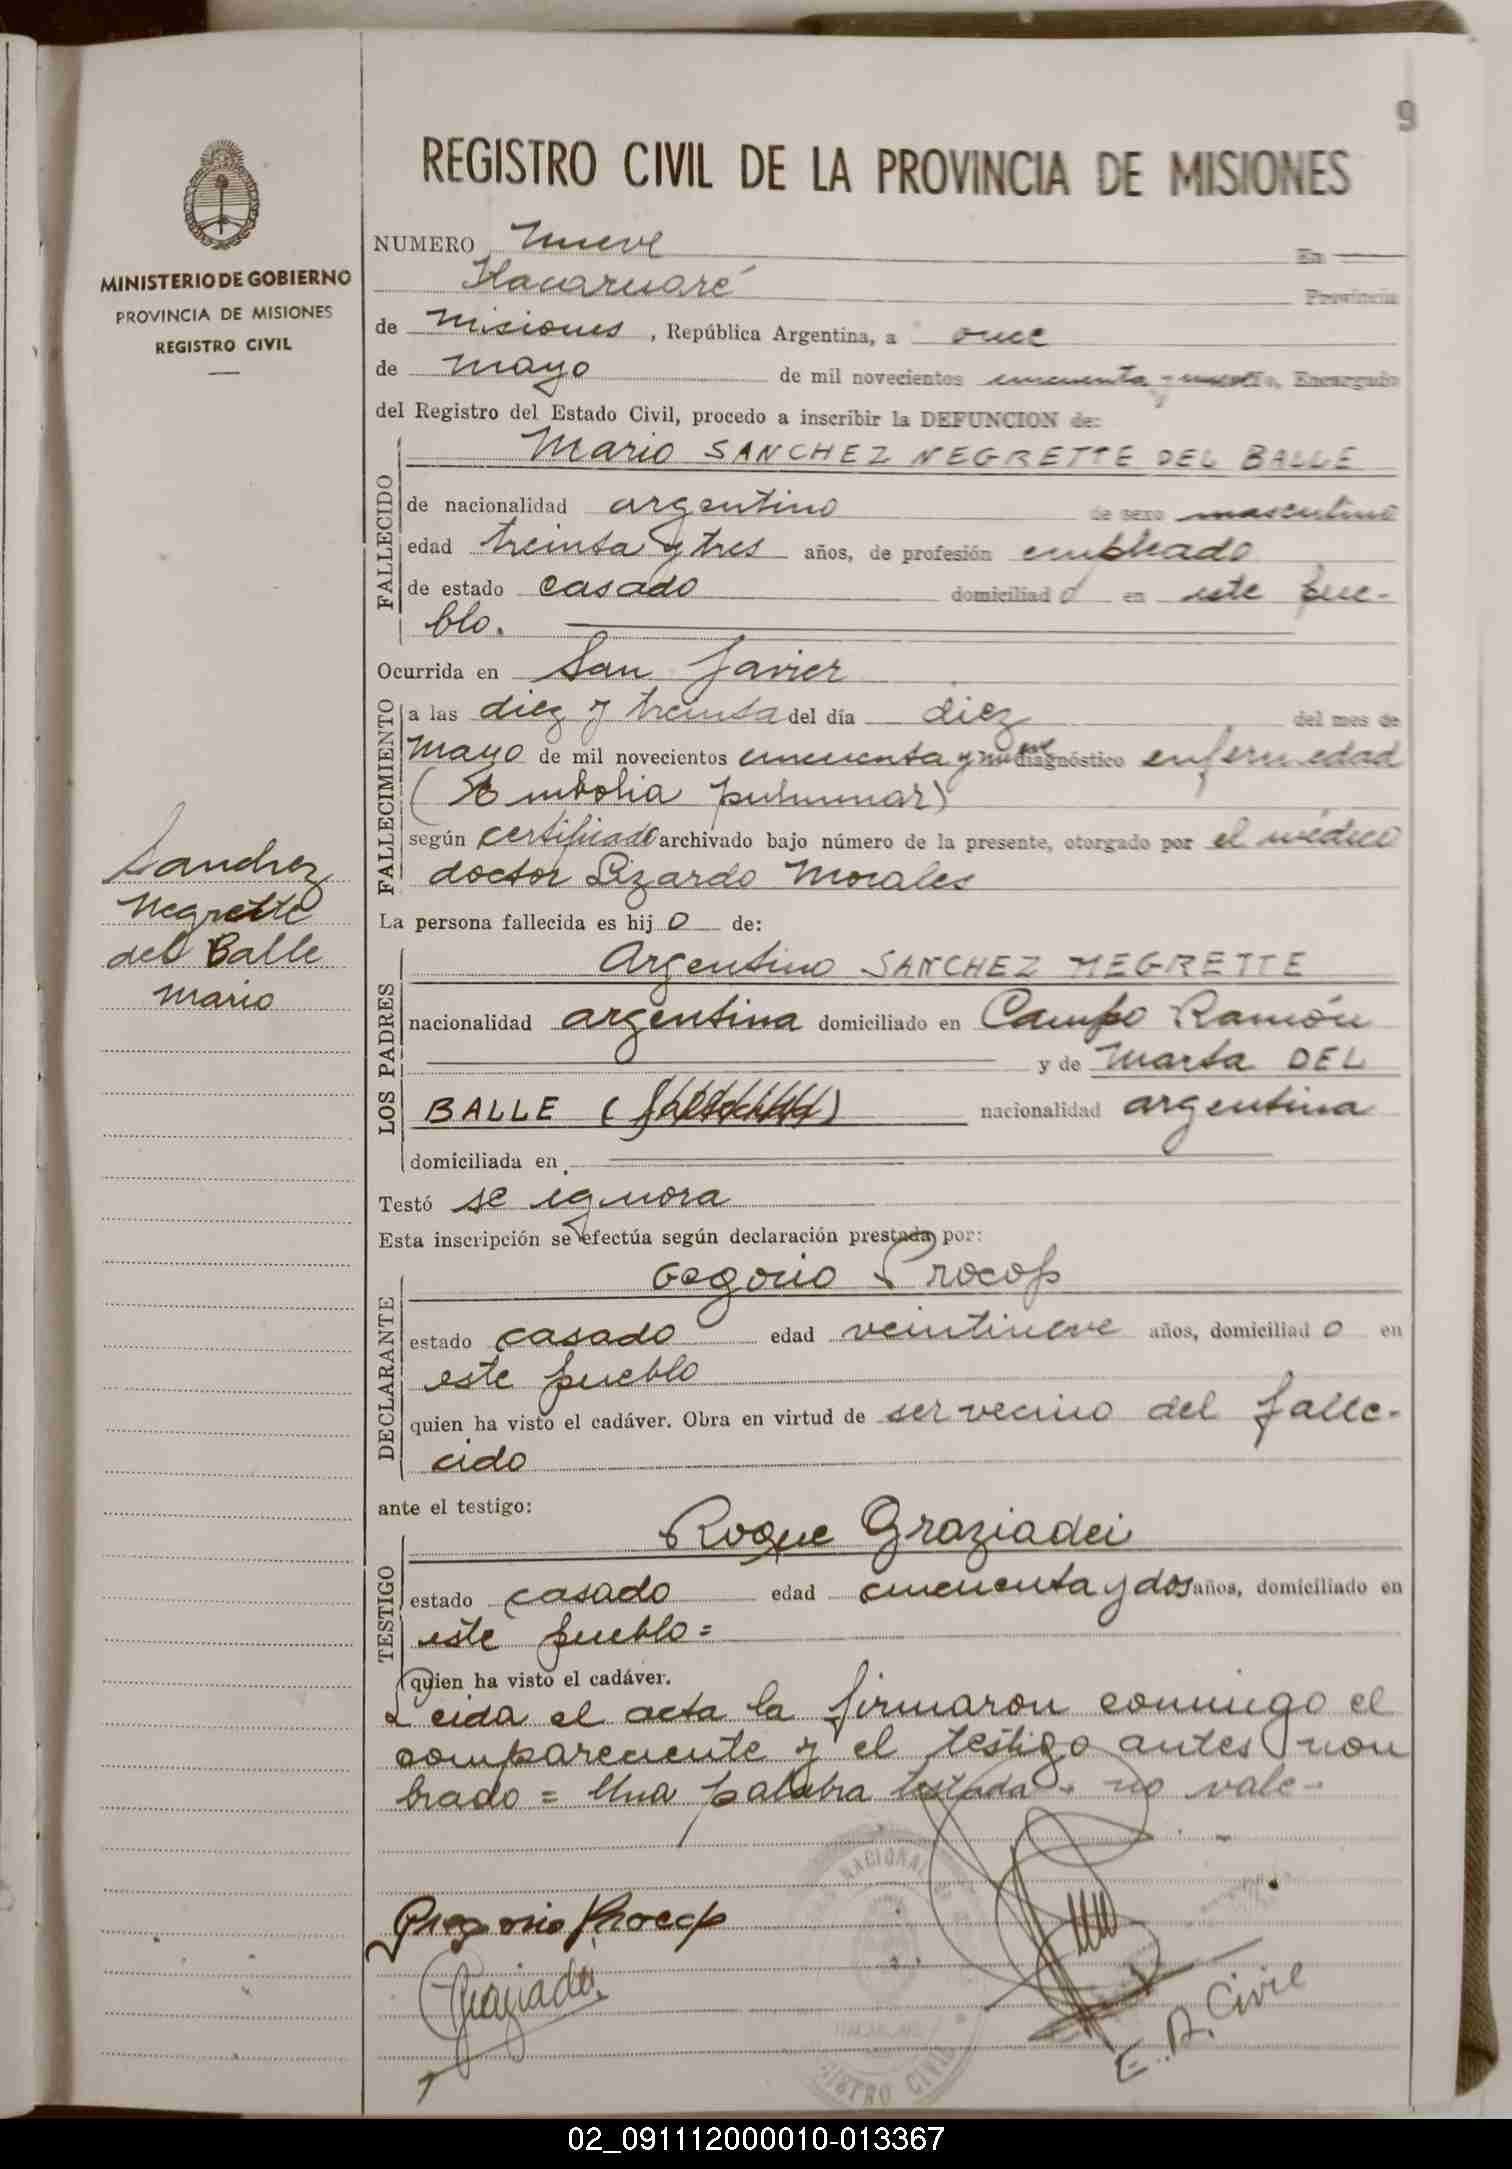 9
REGISTRO CIVIL DE LA PROVINCIA DE MISIONES
MINISTERIO DE GOBIERNO
PROVINCIA DE MISIONES
REGISTRO CIVIL
NUMERO Nueve En
Itacaruaré Provincia
de Misiones, República Argentina, a once
de Mayo de mil novecientos cincuenta y nueve, Encargado
del Registro del Estado Civil, procedo a inscribir la DEFUNCION de:
Mario SANCHEZ NEGRETTE DEL BALLE
FALLECIDO
de nacionalidad argentino de sexo masculino
edad treinta y tres años, de profesión empleado
de estado casado domiciliado en este pue-
blo.
Ocurrida en San Javier
FALLECIMIENTO
a las diez y treinta del día diez del mes de
Mayo de mil novecientos cincuenta y nueve diagnóstico enfermedad
(Embolia pulmunar)
según certificado archivado bajo número de la presente, otorgado por el médico
doctor Lizardo Morales
Sanchez
Negrette
del Balle
Mario
La persona fallecida es hijo de:
LOS PADRES
Argentino SANCHEZ NEGRETTE
nacionalidad argentina domiciliado en Campo Ramón
y de Marta DEL
BALLE ( ) nacionalidad argentina
domiciliada en
Testó se ignora
Esta inscripción se efectúa según declaración prestada por:
DECLARANTE
Gegorio Procop
estado casado edad veintineve años, domiciliado en
este pueblo
quien ha visto el cadáver. Obra en virtud de ser vecino del falle-
cido
ante el testigo:
TESTIGO
Roque Graziadei
estado casado edad cincuenta y dos años, domiciliado en
este pueblo=
quien ha visto el cadáver.
Leida el acta la firmaron conmigo el
compareciente y el testigo antes nom
brado = Una palabra testada - no vale-
Gregorio Procop
Graziadei
E. R. Civil
REGISTRO CIVIL
02_091112000010-013367